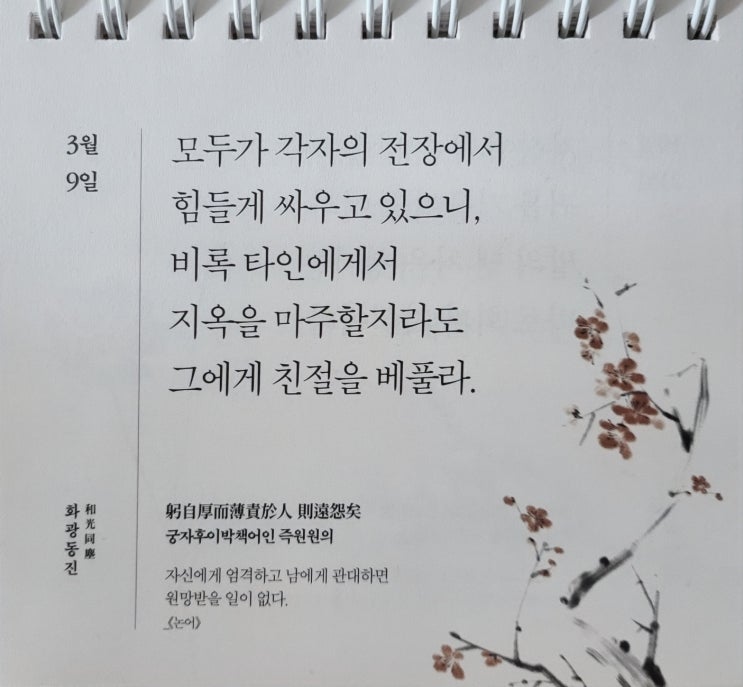 3월
9일
모두가 각자의 전장에서
힘들게 싸우고 있으니,
비록 타인에게서
지옥을 마주할지라도
그에게 친절을 베풀라.
和光同塵
화광동진
躬自厚而薄責於人 則遠怨矣
궁자후이박책어인 즉원원의
자신에게 엄격하고 남에게 관대하면
원망받을 일이 없다.
《논어》